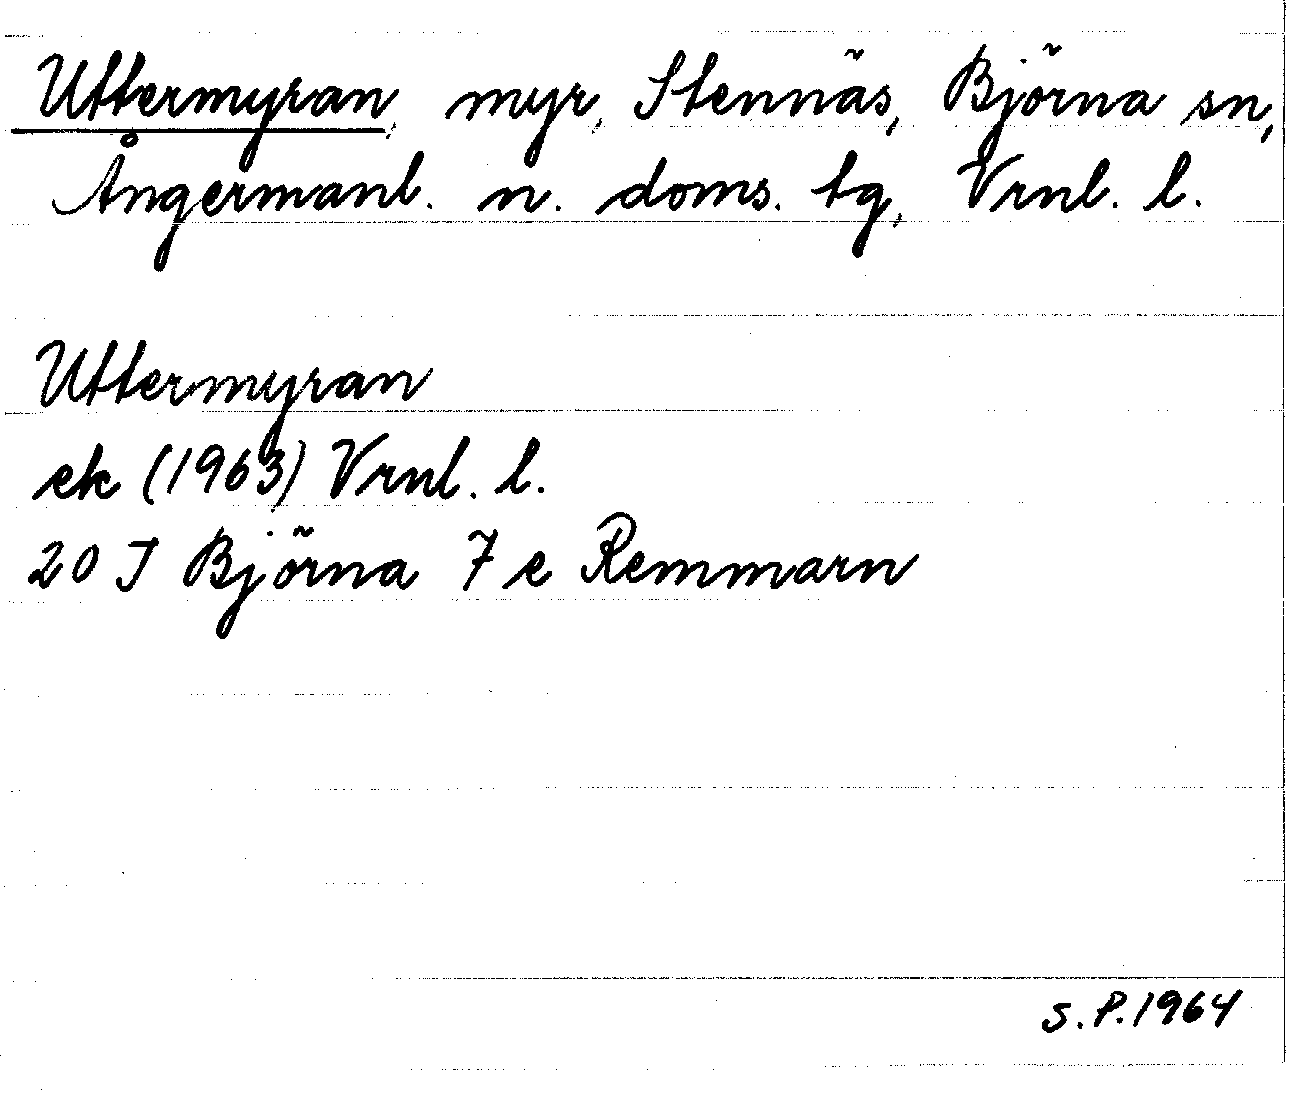 Uttermyran, myr, Stennäs, Björna sn,
Ångermanl. n. doms. tg, Vrnl. l.
Uttermyran
ek (1963) Vrnl. l.
20 J Björna 7 e Remmarn
S.P. 1964